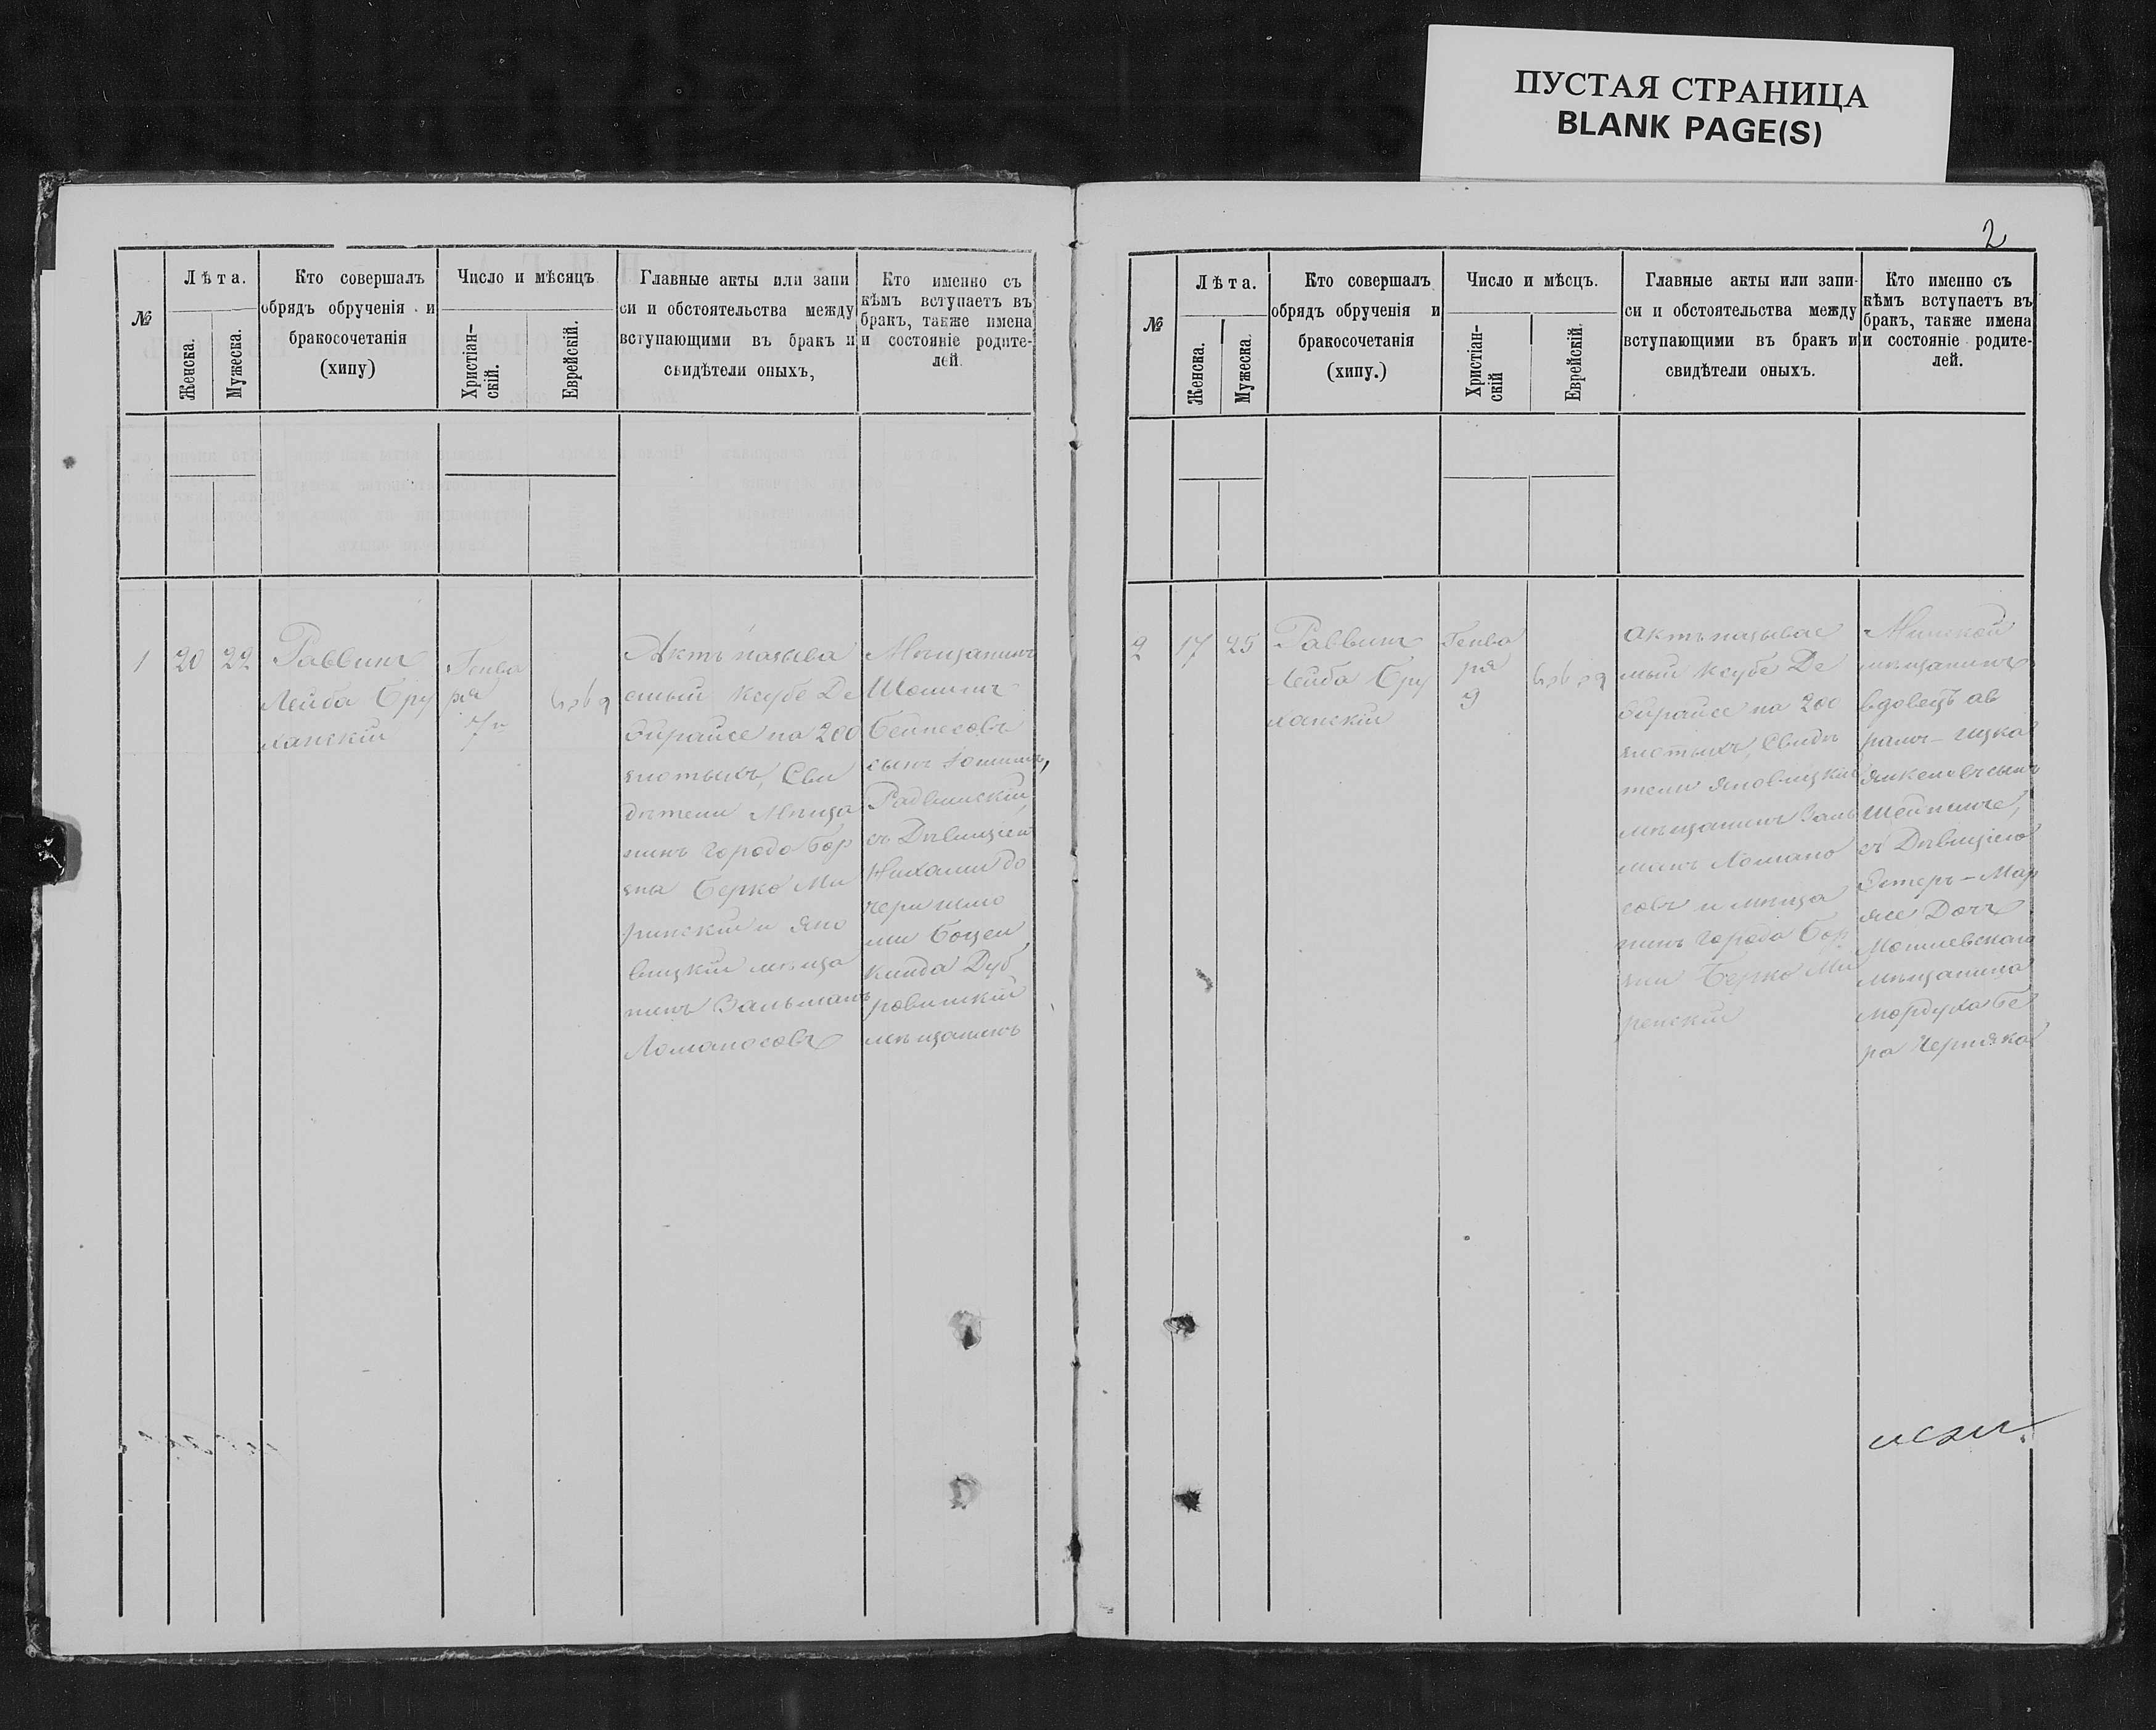 ПУСТАЯ СТРАНИЦА
BLANK PAGE(S)
№
Лѣта.
Женска.
Мужеска.
Кто совершалъ
обрядъ обрученія и
бракосочетанія
(хипу)
Число и мѣсяцъ
Христіан-
скій.
Еврейскій.
Главные акты или запи
си и обстоятельства между
вступающими въ бракъ и
свидѣтели оныхъ,
Кто именно съ
кѣмъ вступаетъ въ
бракъ, также имена
и состояніе родите-
лей.
1
20
22
Раввинъ
Лейба Бру
ханскій
Генва
ря
7
Актъ называ
емый Ксубе Де
бирайсе на 200
злотыхъ, Сви
дѣтели Мѣща
нинъ города Бор
зны Берко Ми
ринскій и Яно
вицкій мѣща
нинъ Зальманъ
Ломаносовъ
Мѣщанинъ
Бейнесовъ
сынъ
съ Дѣвицею
Дуб
ровинскій
мѣщанинъ
2
№
Лѣта.
Женска.
Мужеска.
Кто совершалъ
обрядъ обрученія и
бракосочетанія
(хипу.)
Число и мѣсцъ.
Христіан-
скій
Еврейскій.
Главные акты или запи-
си и обстоятельства между
вступающими въ бракъ и
свидѣтели оныхъ.
Кто именно съ
кѣмъ вступаетъ въ
бракъ, также имена
и состояніе родите-
лей.
2
17
25
Раввинъ
Лейба Бру
ханскій
Генва
ря
9
Актъ называе
мый Ксубе Де
бирайсе на 200
злотыхъ, Свидѣ
тели Яновицкій
мѣщанинъ Заль
манъ Ломано
совъ и мѣща
нинъ города Бор
зны Берко Ми
ренскій
Минской
мѣщанинъ
вдовецъ Аб
рамъ-Ицка
Янкелевъ сынъ
съ Дѣвицею
Эстеръ-Мар
ясе Дочь
Могилевскаго
мѣщанина
Мордуха Бе
ра Черняка